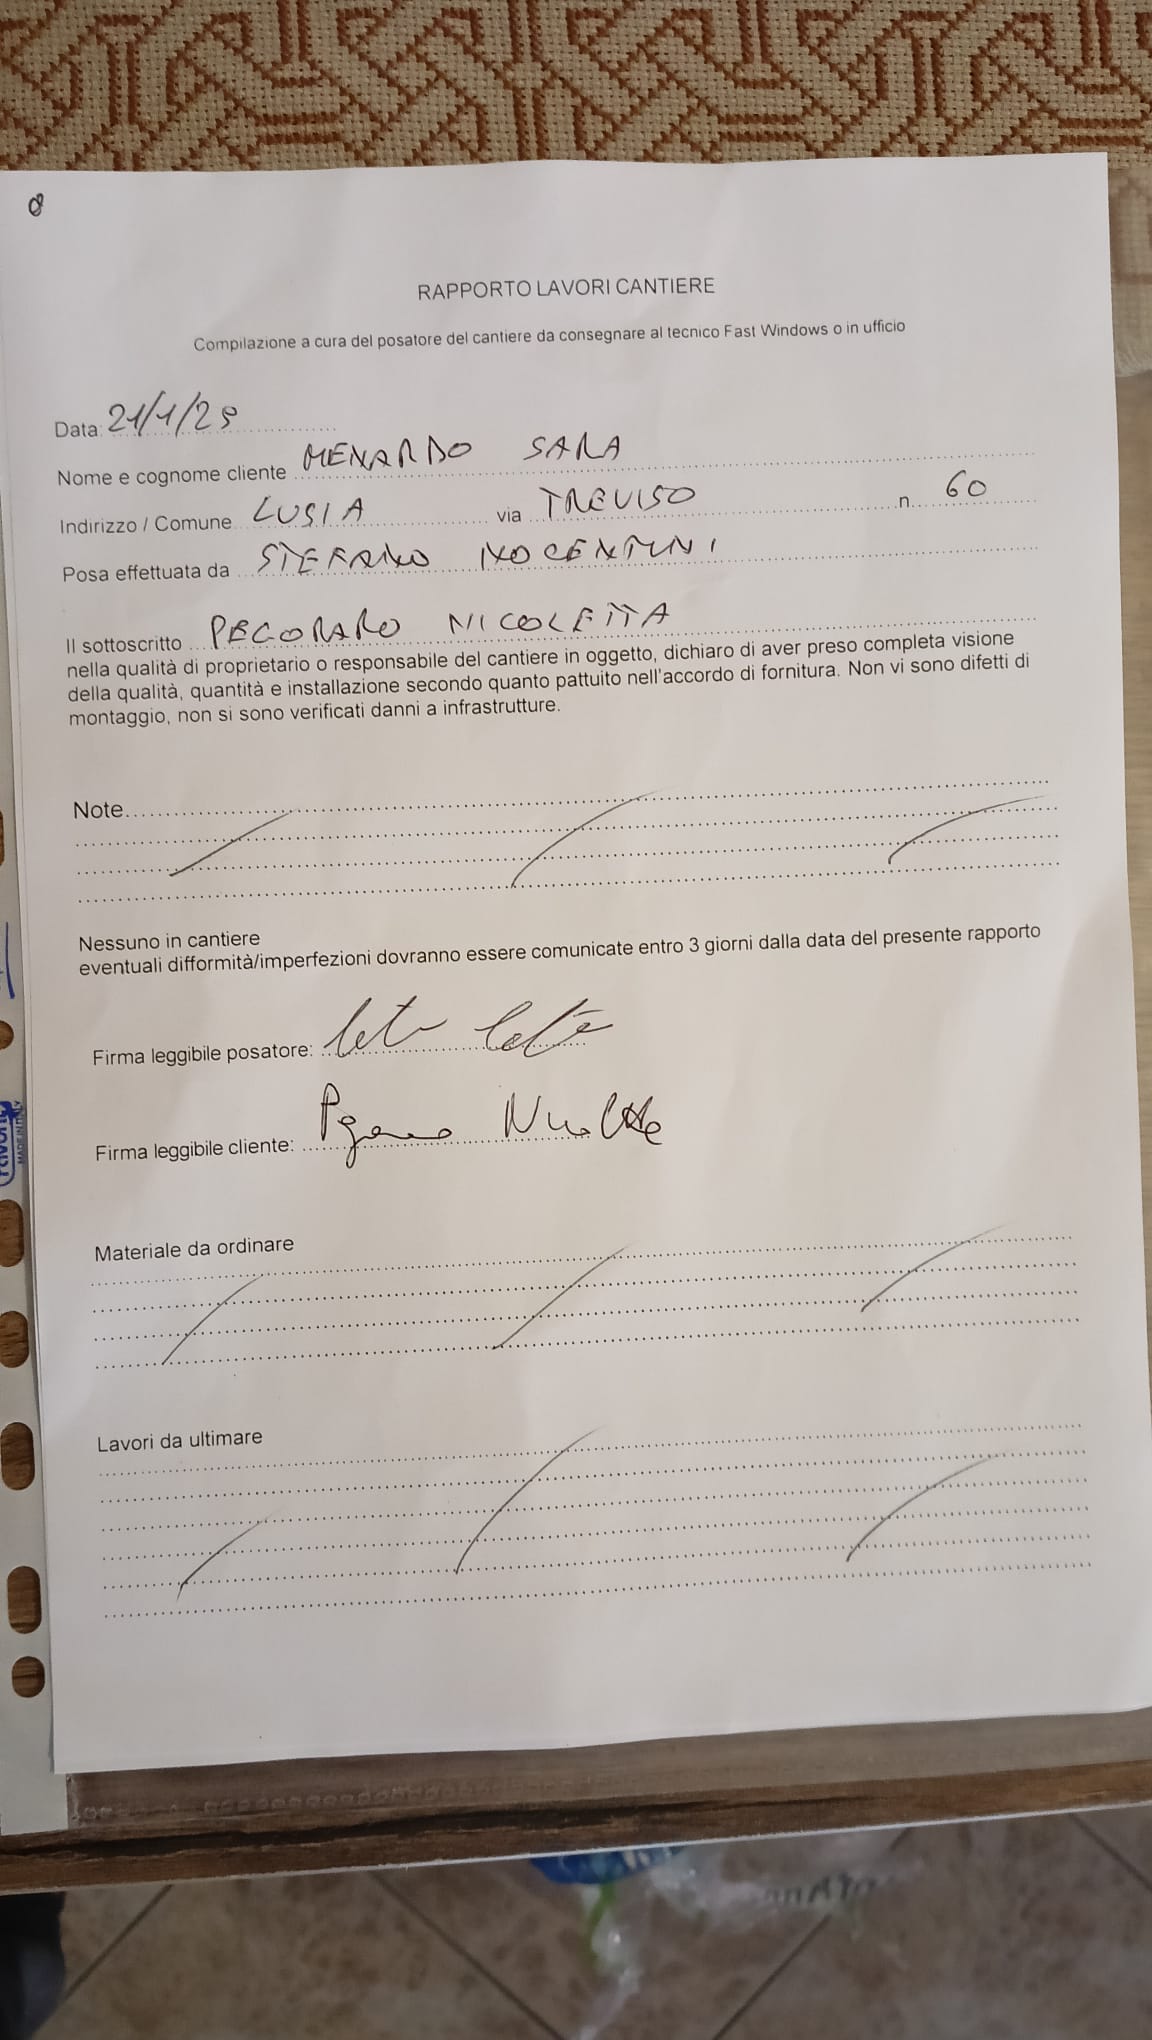 RAPPORTO LAVORI CANTIERE
Compilazione a cura del posatore del cantiere da consegnare al tecnico Fast Windows o in ufficio
Data: 21/1/25
Nome e cognome cliente MENARDO SARA
Indirizzo / Comune LUSIA via TREVISO n. 60
Posa effettuata da STEFANO INOCENTINI
Il sottoscritto PEGORARO NICOLETTA
nella qualità di proprietario o responsabile del cantiere in oggetto, dichiaro di aver preso completa visione
della qualità, quantità e installazione secondo quanto pattuito nell'accordo di fornitura. Non vi sono difetti di
montaggio, non si sono verificati danni a infrastrutture.
Note
Nessuno in cantiere
eventuali difformità/imperfezioni dovranno essere comunicate entro 3 giorni dalla data del presente rapporto
Firma leggibile posatore:
Firma leggibile cliente:
Materiale da ordinare
Lavori da ultimare
MADE IN ITALY